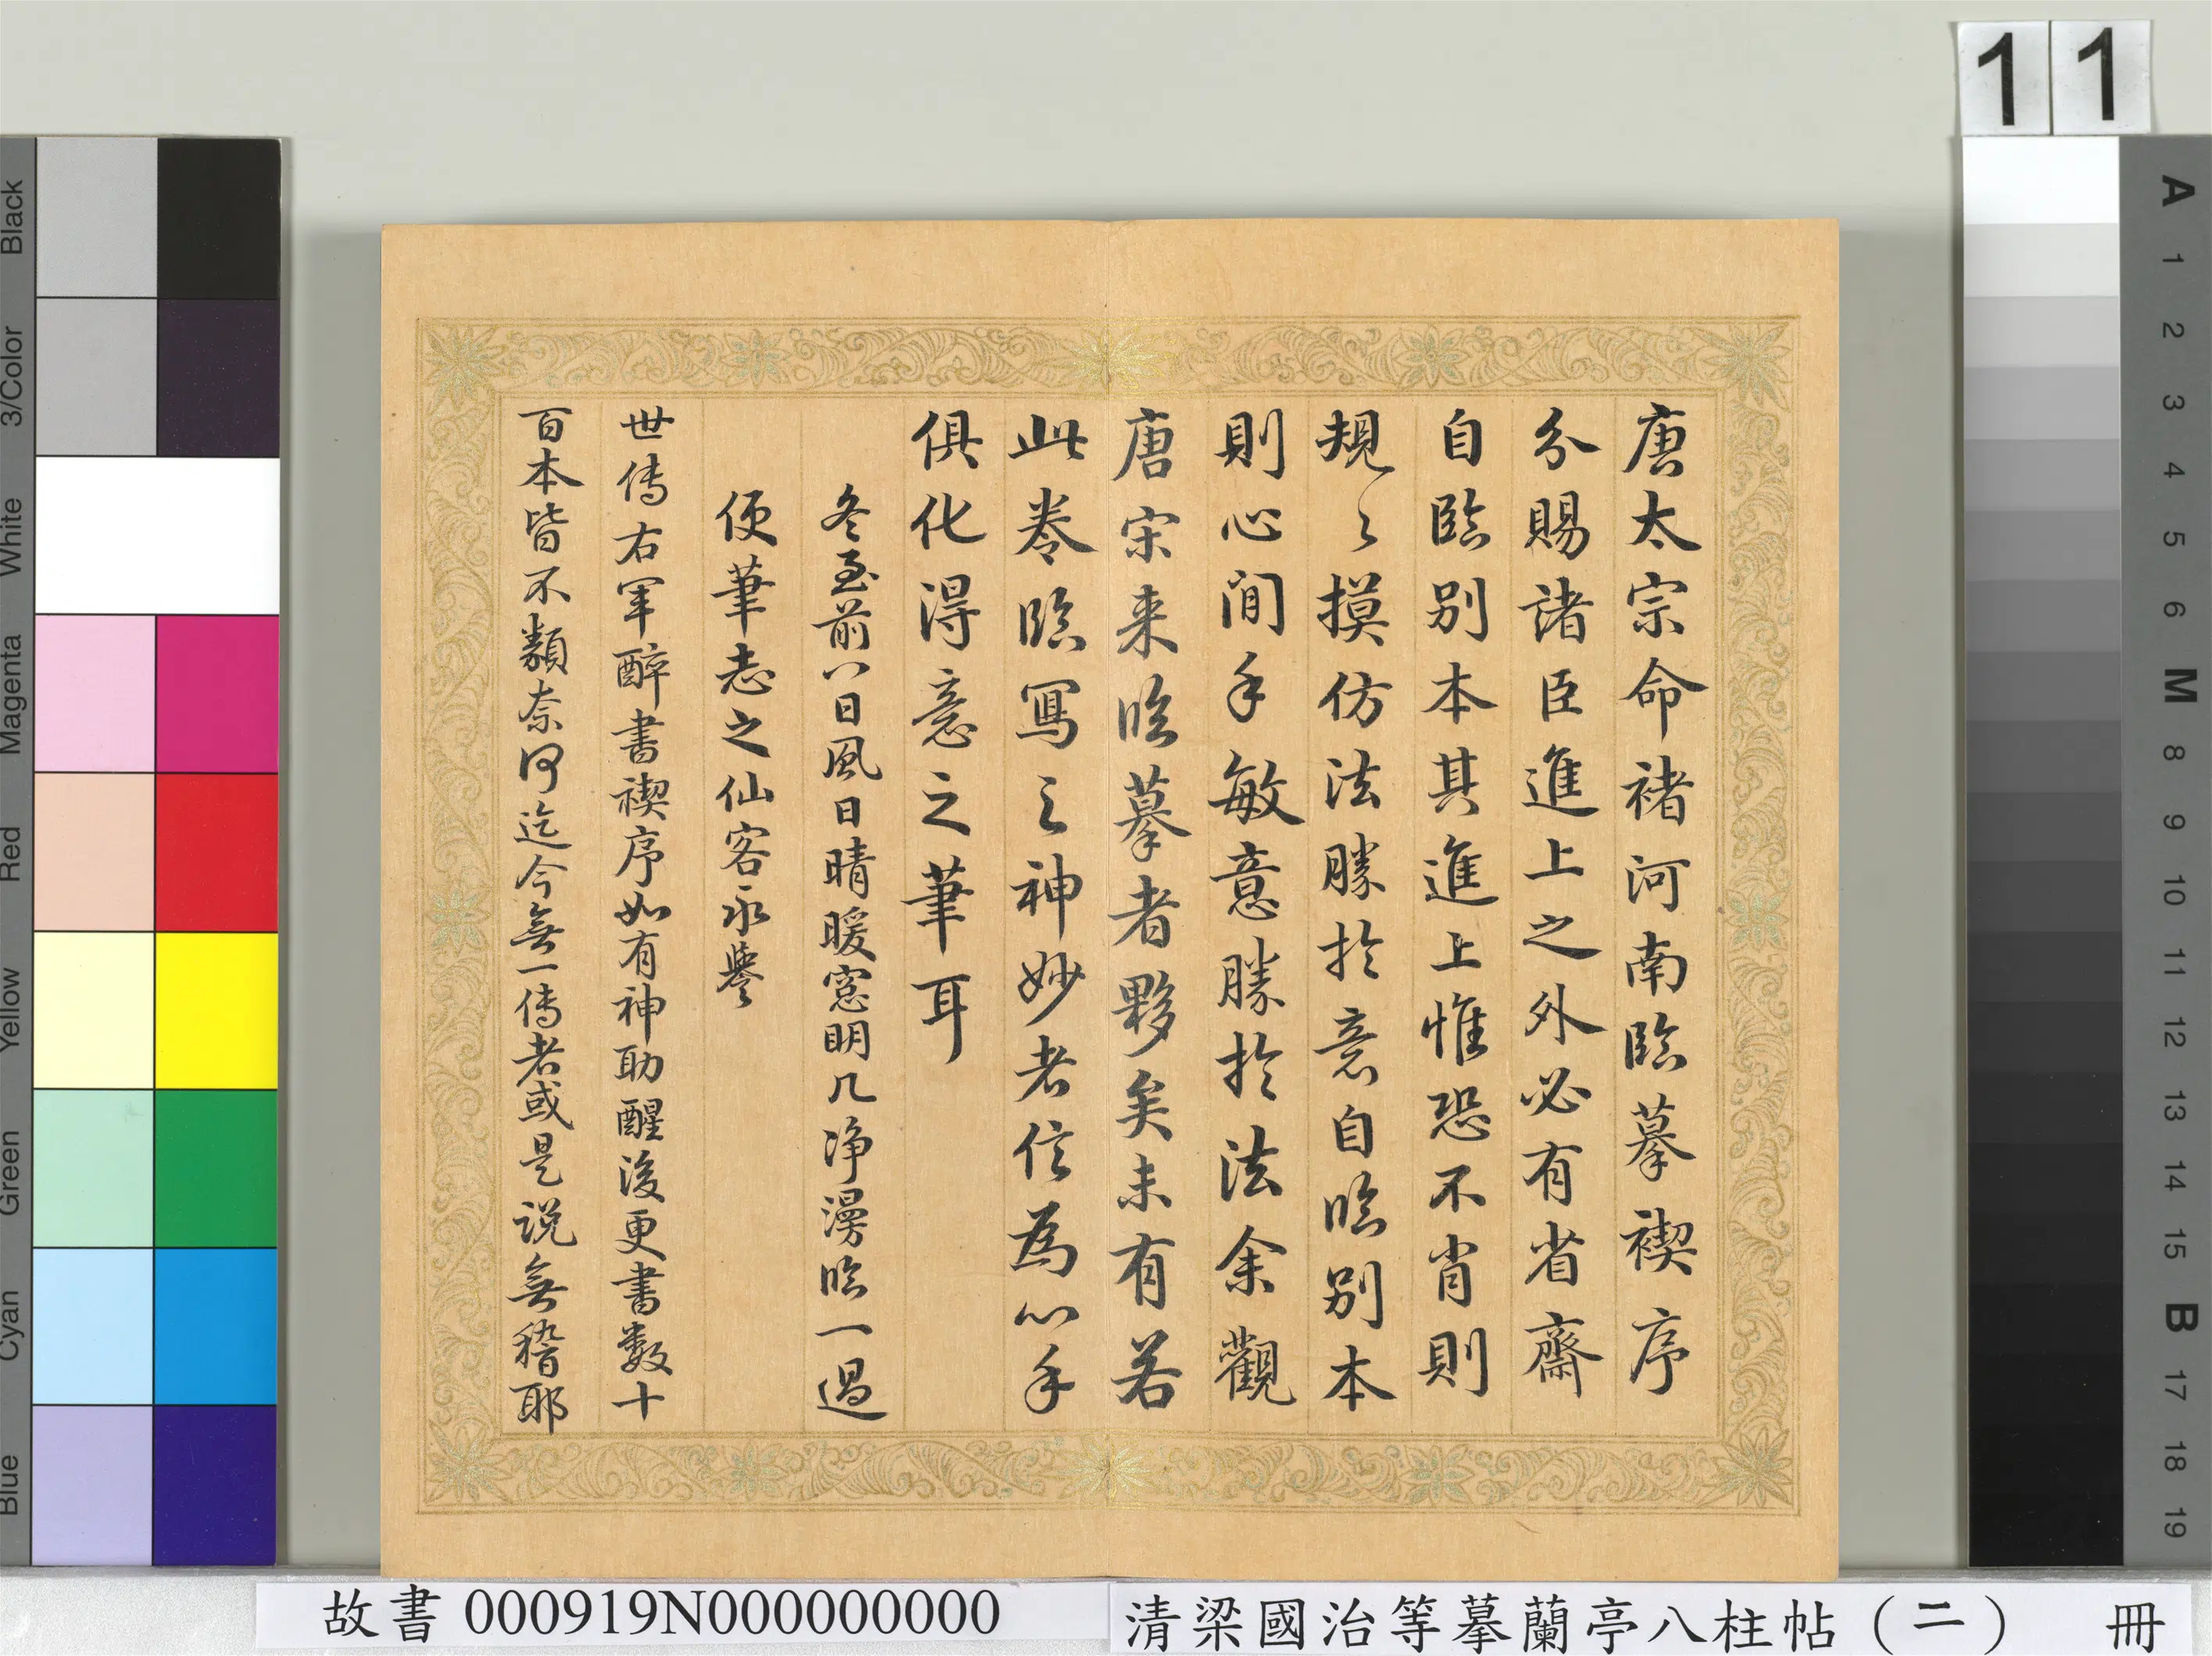 唐太宗命褚河南臨摹禊序
分賜諸臣進上之外必有省齋
自臨別本其進上惟恐不肖則
規〻摸仿法勝於意自臨別本
則心閒手敏意勝於法余觀
唐宋来臨摹者夥矣未有若
此卷臨寫之神妙者信為心手
俱化得意之筆耳
冬至前八日風日晴暖窓明几净漫臨一過
便筆志之仙客永譽
世傳右軍醉書禊序如有神助醒後更書数十
百本皆不類奈何迄今無一傳者或是説無稽耶
11
Black
3/Color
White
Magenta
Red
Yellow
Green
Cyan
Blue
A
1
2
3
4
5
6
M
8
9
10
11
12
13
14
15
B
17
18
19
故書 000919N000000000
清梁國治等摹蘭亭八柱帖（二） 冊